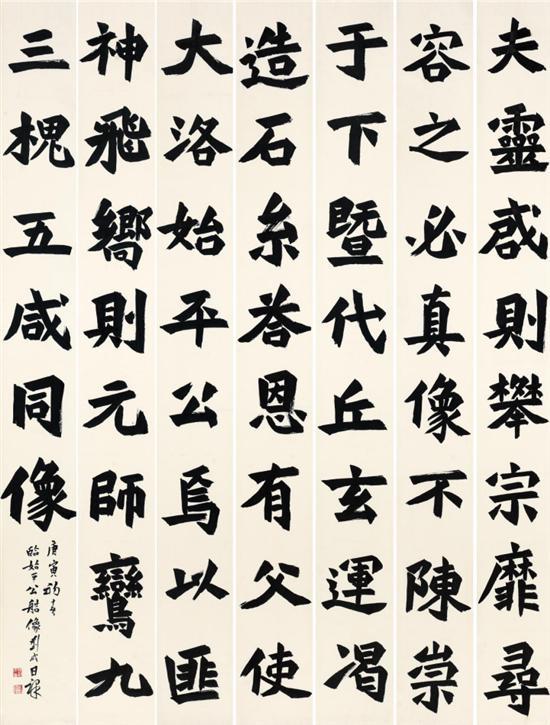 夫靈咸則攀宗靡尋
容之必真像不陳崇
于下暨代丘玄運渴
造石糸荅恩有父使
大洛始平公焉以匪
神飛嚮則元師鸞九
三槐五咸同像
庚寅初春
臨始平公造像